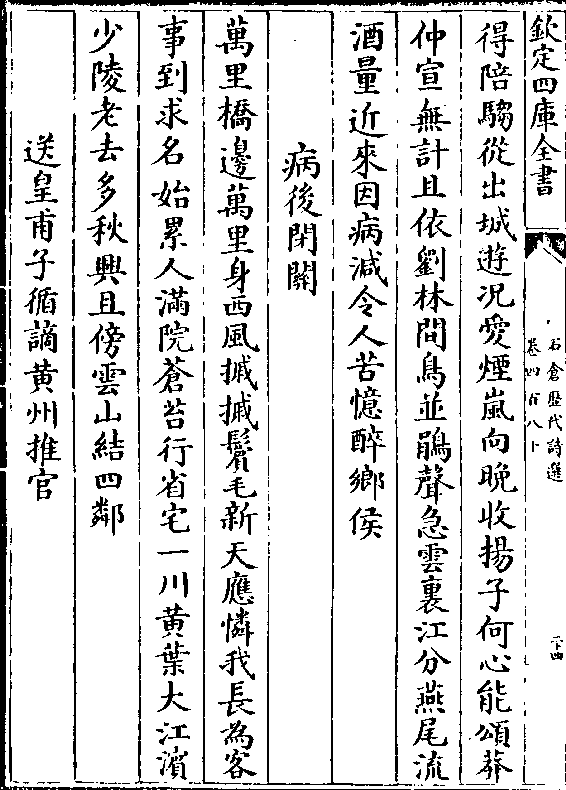 欽定四庫全書
石倉歷代詩選
卷四百八十
二十四
得陪騶從出城遊况愛煙嵐向晚收揚子何心能頌莽
仲宣無計且依劉林間鳥並鵑聲急雲裏江分燕尾流
酒量近來因病減令人苦憶醉鄉侯
病後閉關
萬里橋邊萬里身西風摵摵鬢毛新天應憐我長為客
事到求名始累人滿院蒼苔行省宅一川黄葉大江濱
少陵老去多秋興且傍雲山結四鄰
送皇甫子循謫黄州推官